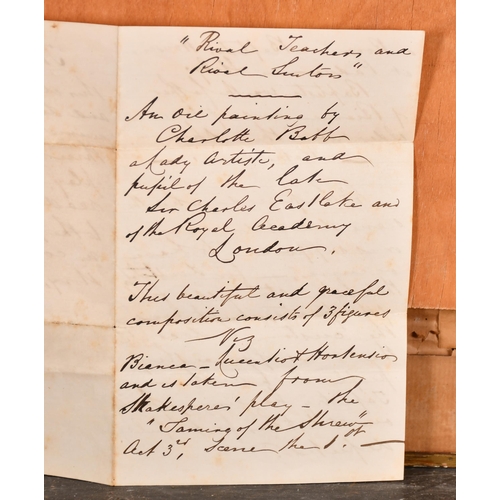 "Rival Teachers and
Rival Suitors"
An oil painting by
Charlotte Babb
a Lady Artiste, and
pupil of the late
Sir Charles Eastlake and
of the Royal Academy
London.
This beautiful and graceful
composition consists of 3 figures
Viz
Bianca - Lucentio & Hortensio
and is taken from
Shakespere's play - the
"Taming of the Shrew"
Act 3rd, Scene the 1st. -